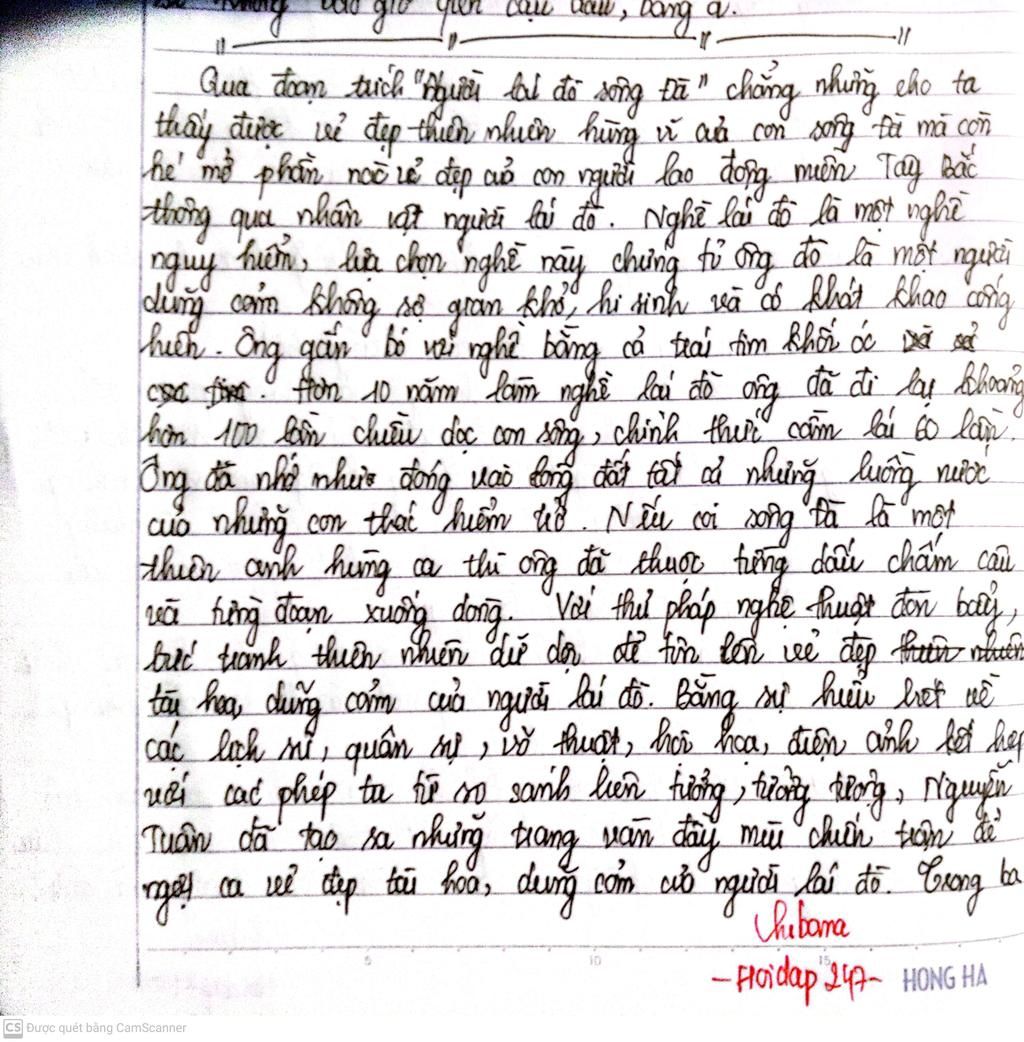 không bao giờ quên cậu đâu, bằng ạ.
Qua đoạn trích "Người lái đò sông Đà" chẳng những cho ta
thấy được vẻ đẹp thiên nhiên hùng vĩ của con sông Đà mà còn
hé mở phần nào vẻ đẹp của con người lao động miền Tây Bắc
thông qua nhân vật người lái đò. Nghề lái đò là một nghề
nguy hiểm, lựa chọn nghề này chứng tỏ ông đò là một người
dũng cảm không sợ gian khổ, hi sinh và có khát khao cống
hiến. Ông gắn bó với nghề bằng cả trái tim khối óc
. Hơn 10 năm làm nghề lái đò ông đã đi lại khoảng
hơn 100 lần chiều dọc con sông, chính thức cầm lái 60 lần.
Ông đã nhớ như đóng vào lòng đất tất cả những luồng nước
của những con thác hiểm trở. Nếu coi sông Đà là một
thiên anh hùng ca thì ông đã thuộc từng dấu chấm câu
và từng đoạn xuống dòng. Với thủ pháp nghệ thuật đòn bẩy,
bức tranh thiên nhiên dữ dội để tôn lên vẻ đẹp thiên nhiên
tài hoa, dũng cảm của người lái đò. Bằng sự hiểu biết về
các lịch sử, quân sự, võ thuật, hội họa, điện ảnh kết hợp
với các phép tu từ so sánh liên tưởng, tưởng tượng, Nguyễn
Tuân đã tạo sa những trang văn đầy mùi chiến trận để
ngợi ca vẻ đẹp tài hoa, dũng cảm của người lái đò. Trong ba
Chibana
5 10 15
-Hoidap 247- HONG HA
CS Được quét bằng CamScanner